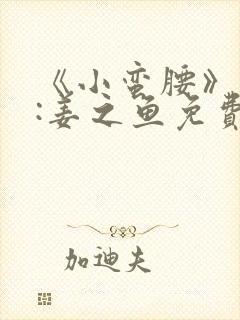 《小蛮腰》
:姜之鱼免費
加迪夫